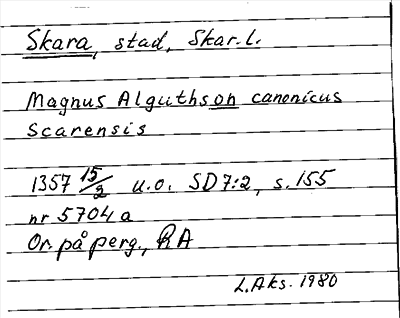 Skara, stad, Skar.l.
Magnus Alguthson canonicus
Scarensis
1357 15/2 u.o. SD7:2, s.155
nr 5704 a
Or. på perg., RA
L.Aks. 1980